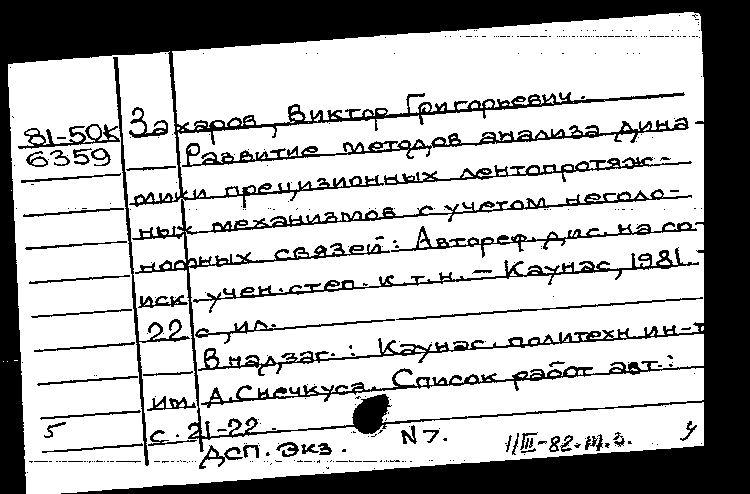 81-50К
6359
Захаров, Виктор Григорьевич.
Развитие методов анализа дина-
мики прецизионных лентопротяж-
ных механизмов с учетом неголо-
номных связей: Автореф. дис. на со-
иск. учен. степ. к.т.н. — Каунас, 1981. -
22 с., ил.
В надзаг.: Каунас. политехн. ин-т
им. А. Снечкуса. Список работ авт.:
с. 21-22.
5
ДСП. Экз. N 7.
11/III-82.
у